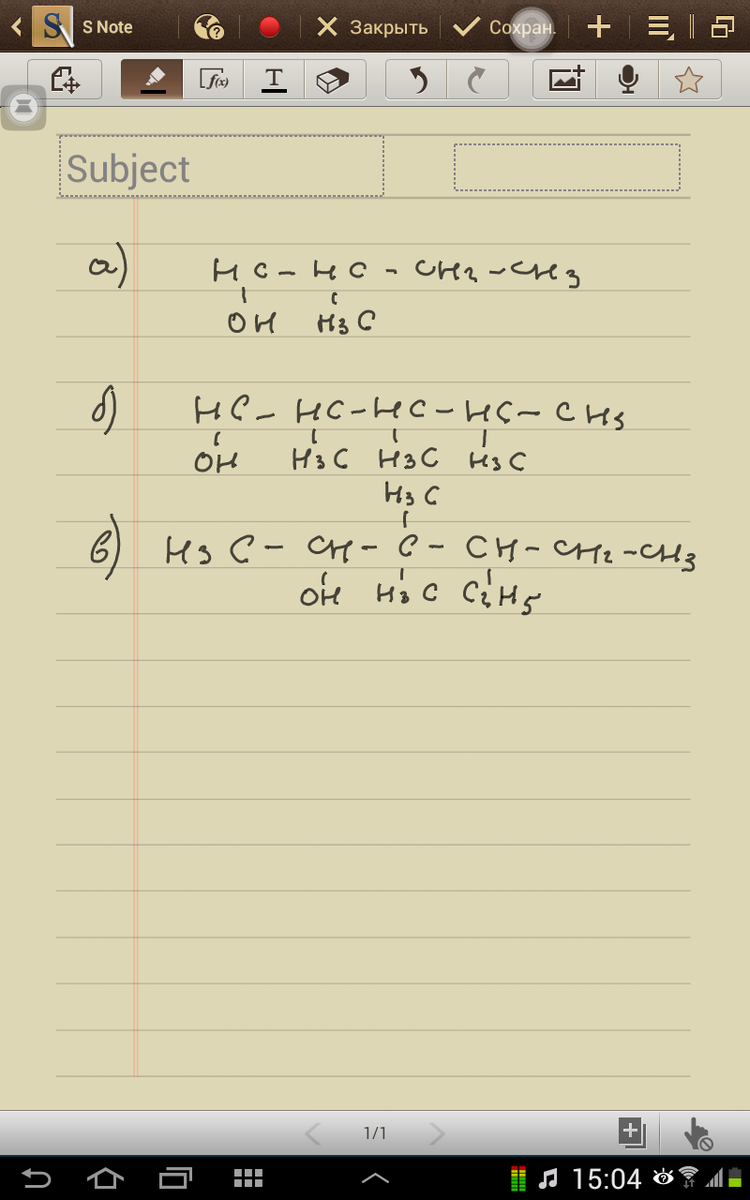 S Note Закрыть Сохран.
f(x) T
Subject
а) HC - HC - CH2 - CH3
OH H3C
б) HC - HC - HC - HC - CH3
OH H3C H3C H3C
H3C
в) H3C - CH - C - CH - CH2 - CH3
OH H3C C2H5
1/1
15:04